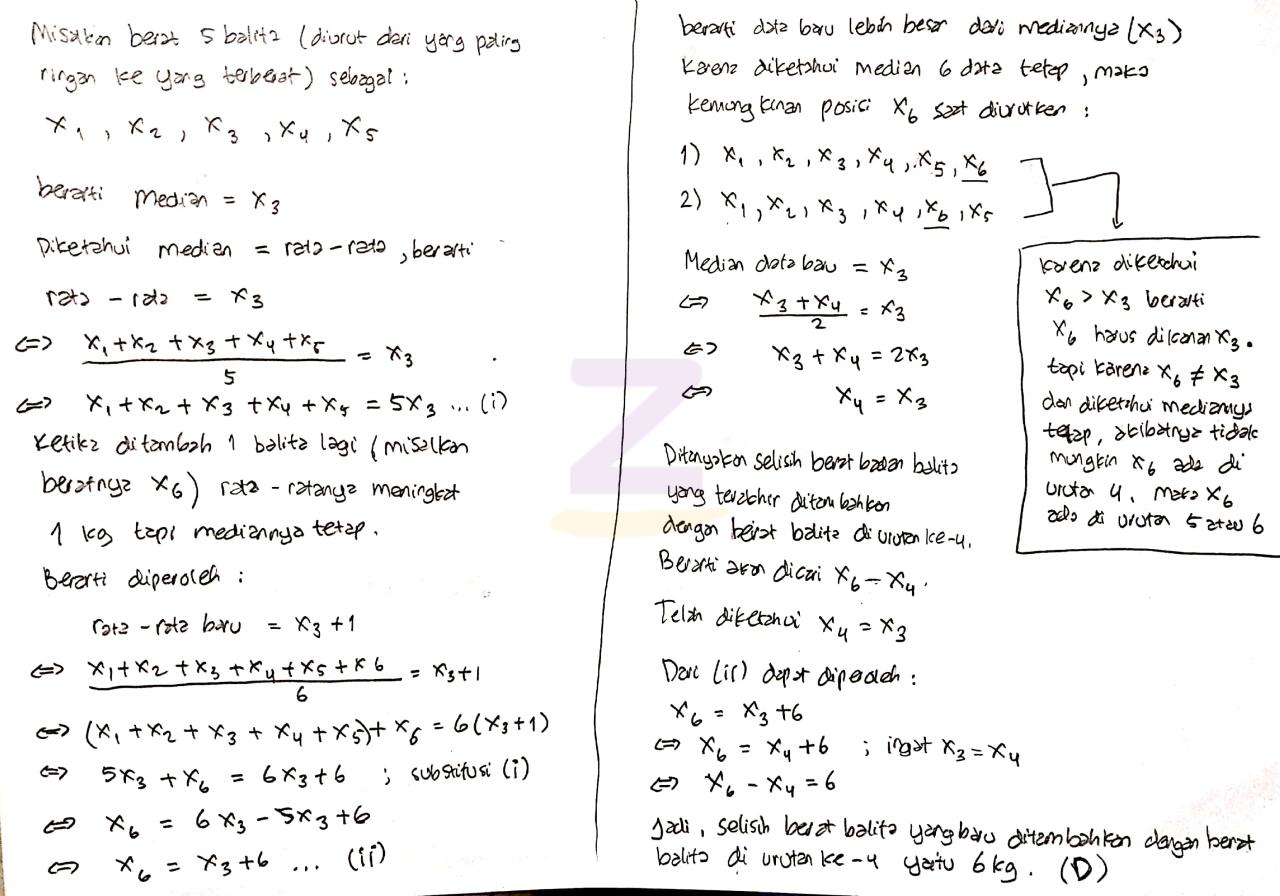 Misalkan berat 5 balita (diurut dari yang paling
ringan ke yang terberat) sebagai :
x₁ , x₂ , x₃ , x₄ , x₅
berarti median = x₃
Diketahui median = rata-rata , berarti
rata-rata = x₃
⇔ (x₁+x₂+x₃+x₄+x₅)/5 = x₃
⇔ x₁+x₂+x₃+x₄+x₅ = 5x₃ ... (i)
Ketika ditambah 1 balita lagi (misalkan
beratnya x₆) rata-ratanya meningkat
1 kg tapi mediannya tetap.
Berarti diperoleh :
rata-rata baru = x₃+1
⇔ (x₁+x₂+x₃+x₄+x₅+x6)/6 = x₃+1
⇔ (x₁+x₂+x₃+x₄+x₅)+x₆ = 6(x₃+1)
⇔ 5x₃+x₆ = 6x₃+6 ; substitusi (i)
⇔ x₆ = 6x₃-5x₃+6
⇔ x₆ = x₃+6 ... (ii)
berarti data baru lebih besar dari mediannya (x₃)
Karena diketahui median 6 data tetap, maka
kemungkinan posisi x₆ saat diurutkan :
1) x₁, x₂, x₃, x₄, x₅, x₆
2) x₁, x₂, x₃, x₄, x₆, x₅
Karena diketahui
x₆ > x₃ berarti
x₆ harus dikanan x₃.
tapi karena x₆ ≠ x₃
dan diketahui mediannya
tetap, akibatnya tidak
mungkin x₆ ada di
urutan 4. Maka x₆
ada di urutan 5 atau 6
Median data baru = x₃
⇔ (x₃+x₄)/2 = x₃
⇔ x₃+x₄ = 2x₃
⇔ x₄ = x₃
Ditanyakan selisih berat badan balita
yang terakhir ditambahkan
dengan berat balita di urutan ke-4.
Berarti akan dicari x₆-x₄.
Telah diketahui x₄ = x₃
Dari (ii) dapat diperoleh :
x₆ = x₃+6
⇔ x₆ = x₄+6 ; ingat x₃=x₄
⇔ x₆-x₄ = 6
Jadi, selisih berat balita yang baru ditambahkan dengan berat
balita di urutan ke-4 yaitu 6 kg. (D)